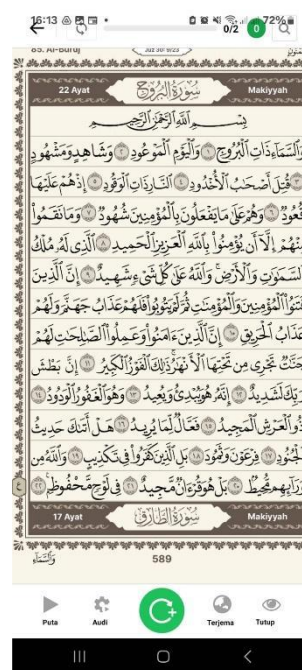 16:13 72%
0/2 0
85. Al-Buruj Juz 30
22 Ayat سُورَةُ الْبُرُوجِ Makiyyah
بِسْمِ اللَّهِ الرَّحْمَٰنِ الرَّحِيمِ
وَالسَّمَاءِ ذَاتِ الْبُرُوجِ ١ وَالْيَوْمِ الْمَوْعُودِ ٢ وَشَاهِدٍ وَمَشْهُودٍ
٣ قُتِلَ أَصْحَابُ الْأُخْدُودِ ٤ النَّارِ ذَاتِ الْوَقُودِ ٥ إِذْ هُمْ عَلَيْهَا
قُعُودٌ ٦ وَهُمْ عَلَىٰ مَا يَفْعَلُونَ بِالْمُؤْمِنِينَ شُهُودٌ ٧ وَمَا نَقَمُوا
مِنْهُمْ إِلَّا أَنْ يُؤْمِنُوا بِاللَّهِ الْعَزِيزِ الْحَمِيدِ ٨ الَّذِي لَهُ مُلْكُ
السَّمَاوَاتِ وَالْأَرْضِ وَاللَّهُ عَلَىٰ كُلِّ شَيْءٍ شَهِيدٌ ٩ إِنَّ الَّذِينَ
فَتَنُوا الْمُؤْمِنِينَ وَالْمُؤْمِنَاتِ ثُمَّ لَمْ يَتُوبُوا فَلَهُمْ عَذَابُ جَهَنَّمَ وَلَهُمْ
عَذَابُ الْحَرِيقِ ١٠ إِنَّ الَّذِينَ آمَنُوا وَعَمِلُوا الصَّالِحَاتِ لَهُمْ
جَنَّاتٌ تَجْرِي مِنْ تَحْتِهَا الْأَنْهَارُ ذَٰلِكَ الْفَوْزُ الْكَبِيرُ ١١ إِنَّ بَطْشَ
رَبِّكَ لَشَدِيدٌ ١٢ إِنَّهُ هُوَ يُبْدِئُ وَيُعِيدُ ١٣ وَهُوَ الْغَفُورُ الْوَدُودُ ١٤
ذُو الْعَرْشِ الْمَجِيدُ ١٥ فَعَّالٌ لِمَا يُرِيدُ ١٦ هَلْ أَتَاكَ حَدِيثُ
الْجُنُودِ ١٧ فِرْعَوْنَ وَثَمُودَ ١٨ بَلِ الَّذِينَ كَفَرُوا فِي تَكْذِيبٍ ١٩ وَاللَّهُ مِنْ
وَرَائِهِمْ مُحِيطٌ ٢٠ بَلْ هُوَ قُرْآنٌ مَجِيدٌ ٢١ فِي لَوْحٍ مَحْفُوظٍ ٢٢
17 Ayat سُورَةُ الطَّارِقِ Makiyyah
589 وَالسَّمَاءِ
Puta Audi Terjema Tutup